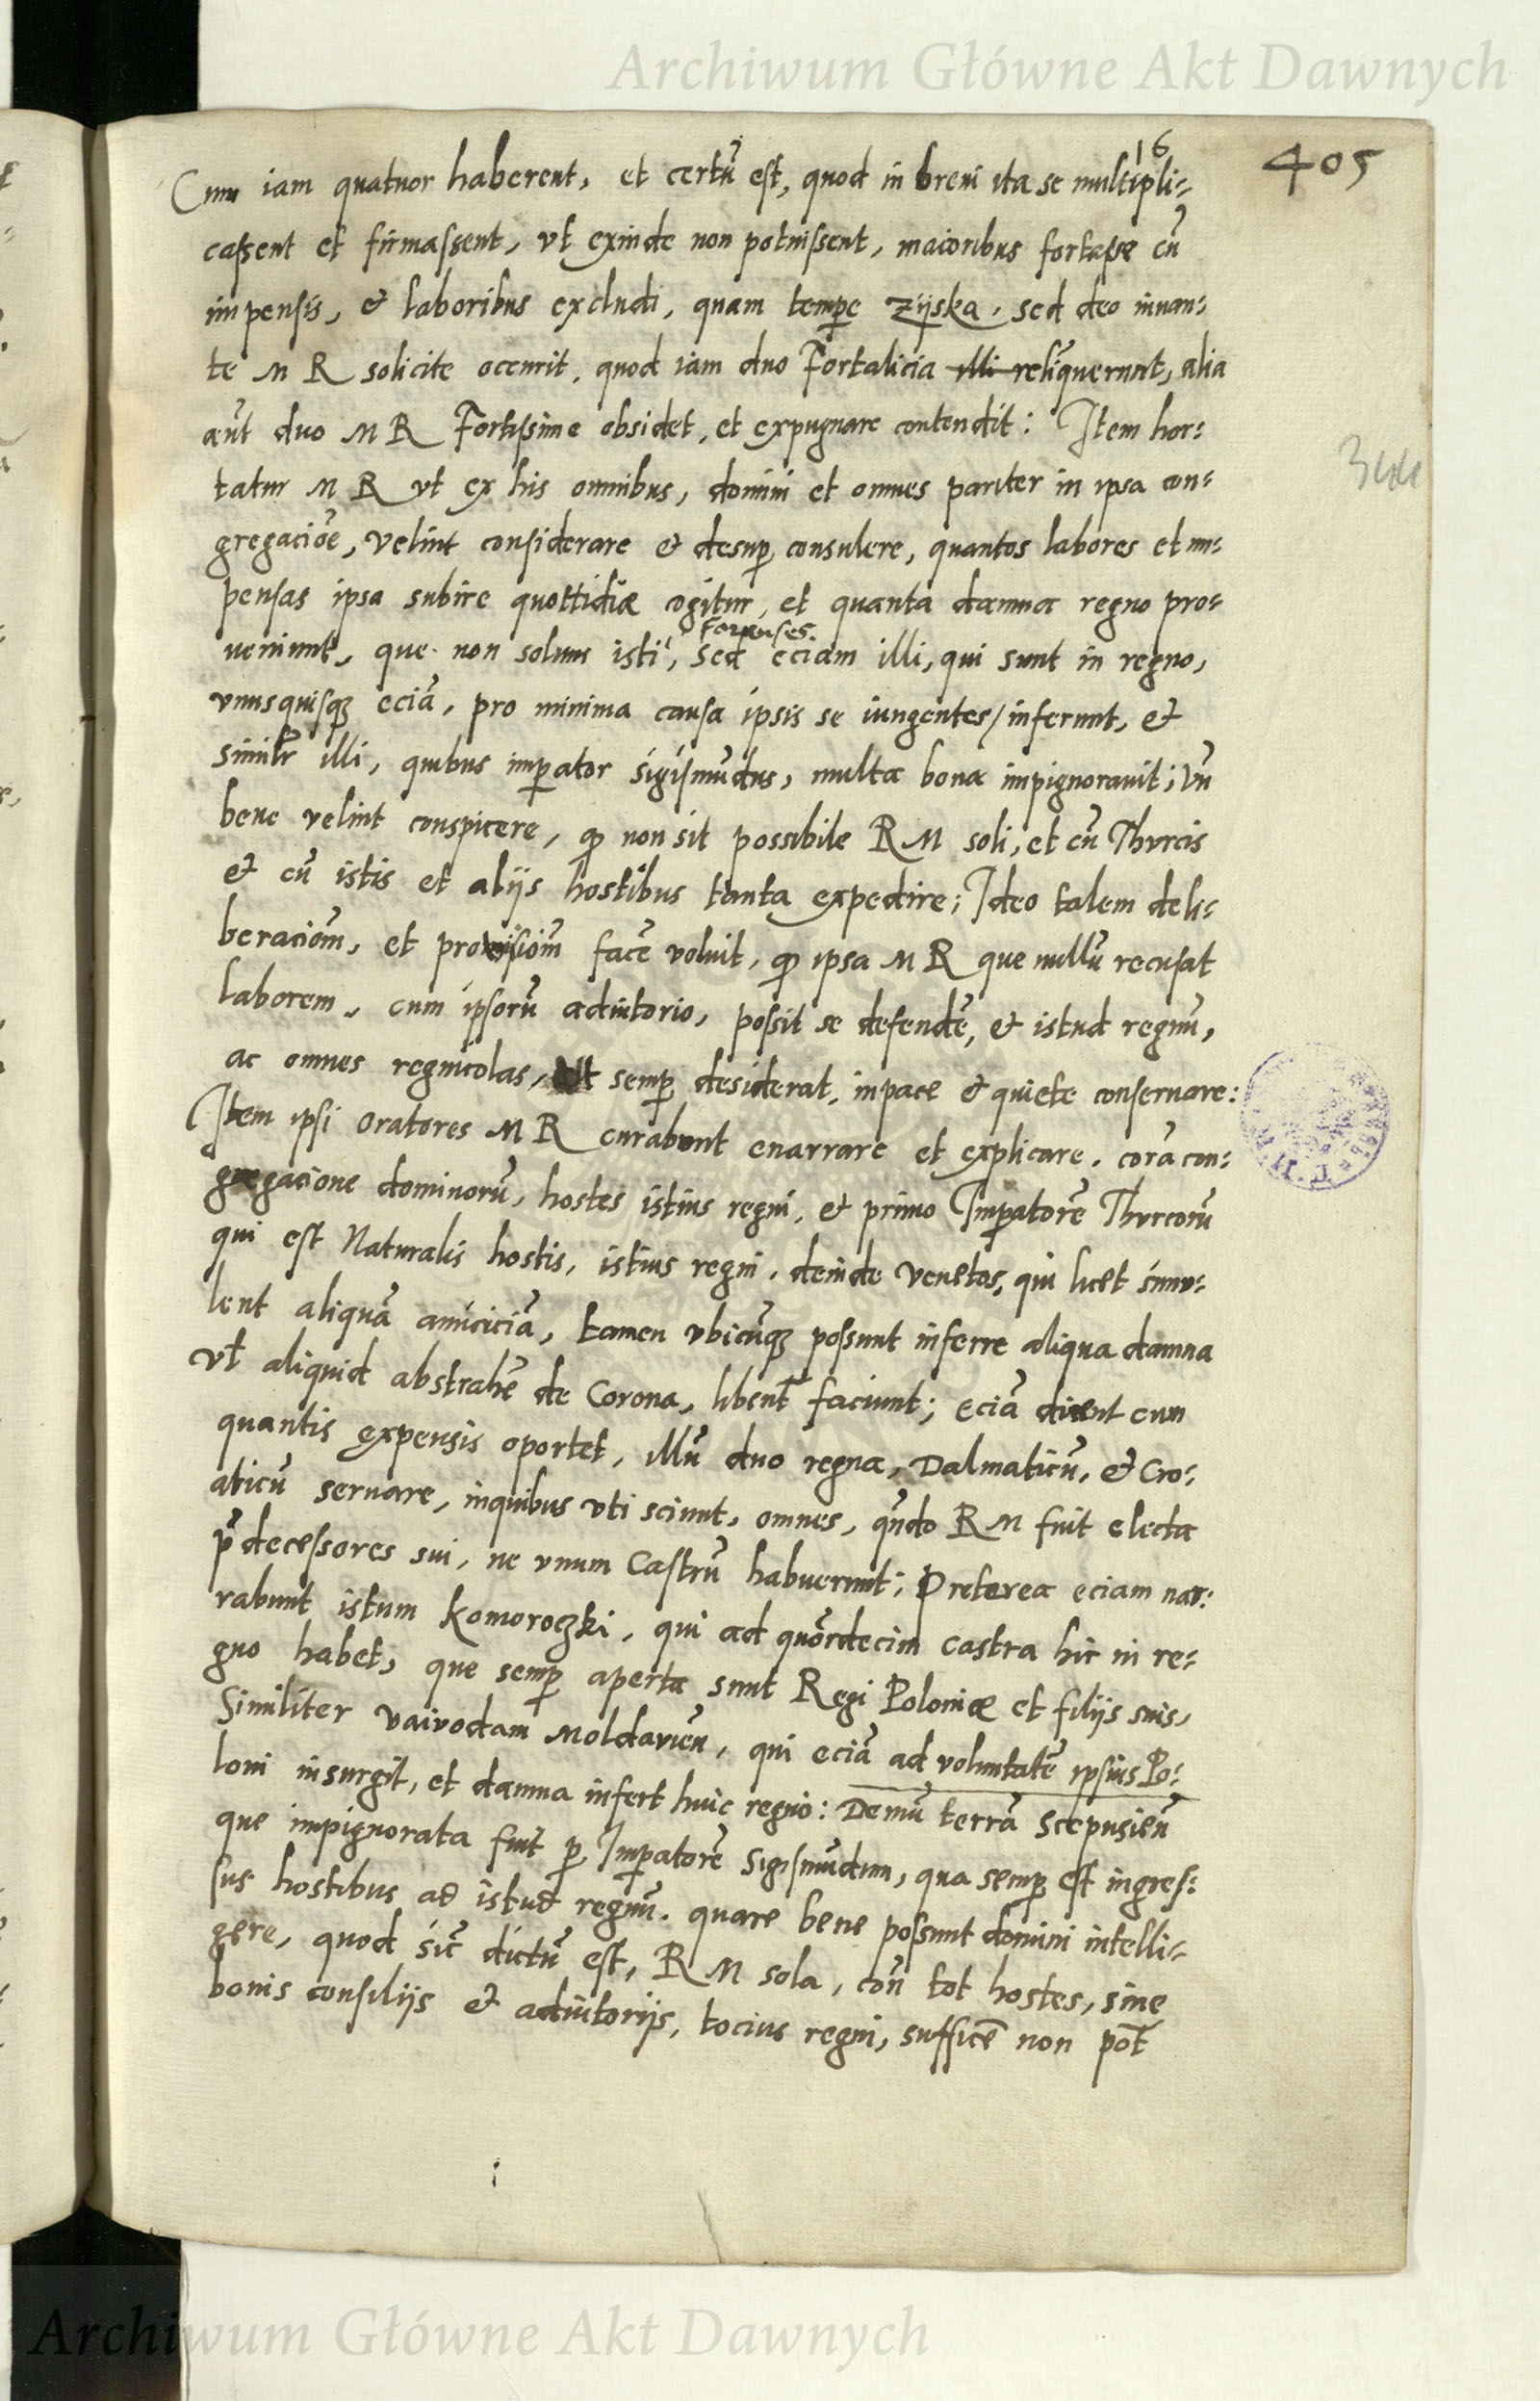 Archiwum Główne Akt Dawnych
16
405
Cum iam quatuor haberent, et certũ est, quod in breui ita se multipli-
cassent et firmassent, vt exinde non potuissent, maioribus fortasse cũ
impensis, & laboribus excludi, quam tempe Zijska. sed deo iuuan-
te M R solicite occurrit, quod iam duo Fortalicia illi reliquerunt, alia
aũt duo M R Fortissime obsidet, et expugnare contendit: Item hor-
tatur M R vt ex his omnibus, domini et omnes pariter in ipsa con-
gregaciõe, velint considerare & desup consulere, quantos labores et im-
pensas ipsa subire quottidiæ cogitur, et quanta damna regno pro-
Forenses.
ueniunt, que non solum isti, sed eciam illi, qui sunt in regno,
vnusquisqz eciã, pro minima causa ipsis se iungentes/inferunt, &
similr illi, quibus impator sigismũdus, multa bona impignorauit; Vn
bene velint conspicere, qp non sit possibile R M soli, et cũ Thvrcis
& cũ istis et alijs hostibus tanta expedire; Ideo talem deli-
beraciom, et prouisiom facẽ voluit, qp ipsa M R que nullũ recusat
laborem, cum ipsorũ adiutorio, possit se defendẽ, & istud regnũ,
ac omnes regnicolas, Vt semp desiderat, in pace & quiete conseruare:
Item ipsi oratores M R curabunt enarrare et explicare. corã con-
gregacione dominorũ, hostes istius regni, & primo Impatorẽ Thvrcorũ
qui est Naturalis hostis, istius regni. deinde venetos, qui licet simu-
lent aliquã amiciciã, tamen vbicũqz possunt inferre aliqua damna
vt aliquid abstrahẽ de Corona, libent faciunt; eciã dicent cum
quantis expensis oportet, illũ duo regna, Dalmaticũ, & Cro-
aticũ seruare, in quibus vti sciunt, omnes, qñdo R M fuit electa
p̃decessores sui, ne vnum Castrũ habuerunt; Preterea eciam nar-
rabunt istum Komoroczki, qui ad quõrdecim castra hic in re-
gno habet, que semp aperta sunt Regi Poloniæ et filijs suis,
Similiter vaivodam Moldauieñ, qui eciã ad voluntatẽ ipsius Po-
loni insurgit, et damna infert huic regno: Demũ terrã Scepusieñ
que impignorata fuit p Impatorẽ Sigismũdum, qua semp est ingres-
sus hostibus ad istud regnũ. quare bene possunt domini intelli-
gere, quod sic dictũ est, R M sola, cõn tot hostes, sine
bonis consilijs & adiutorijs, tocius regni, sufficẽ non pot
Archiwum Główne Akt Dawnych